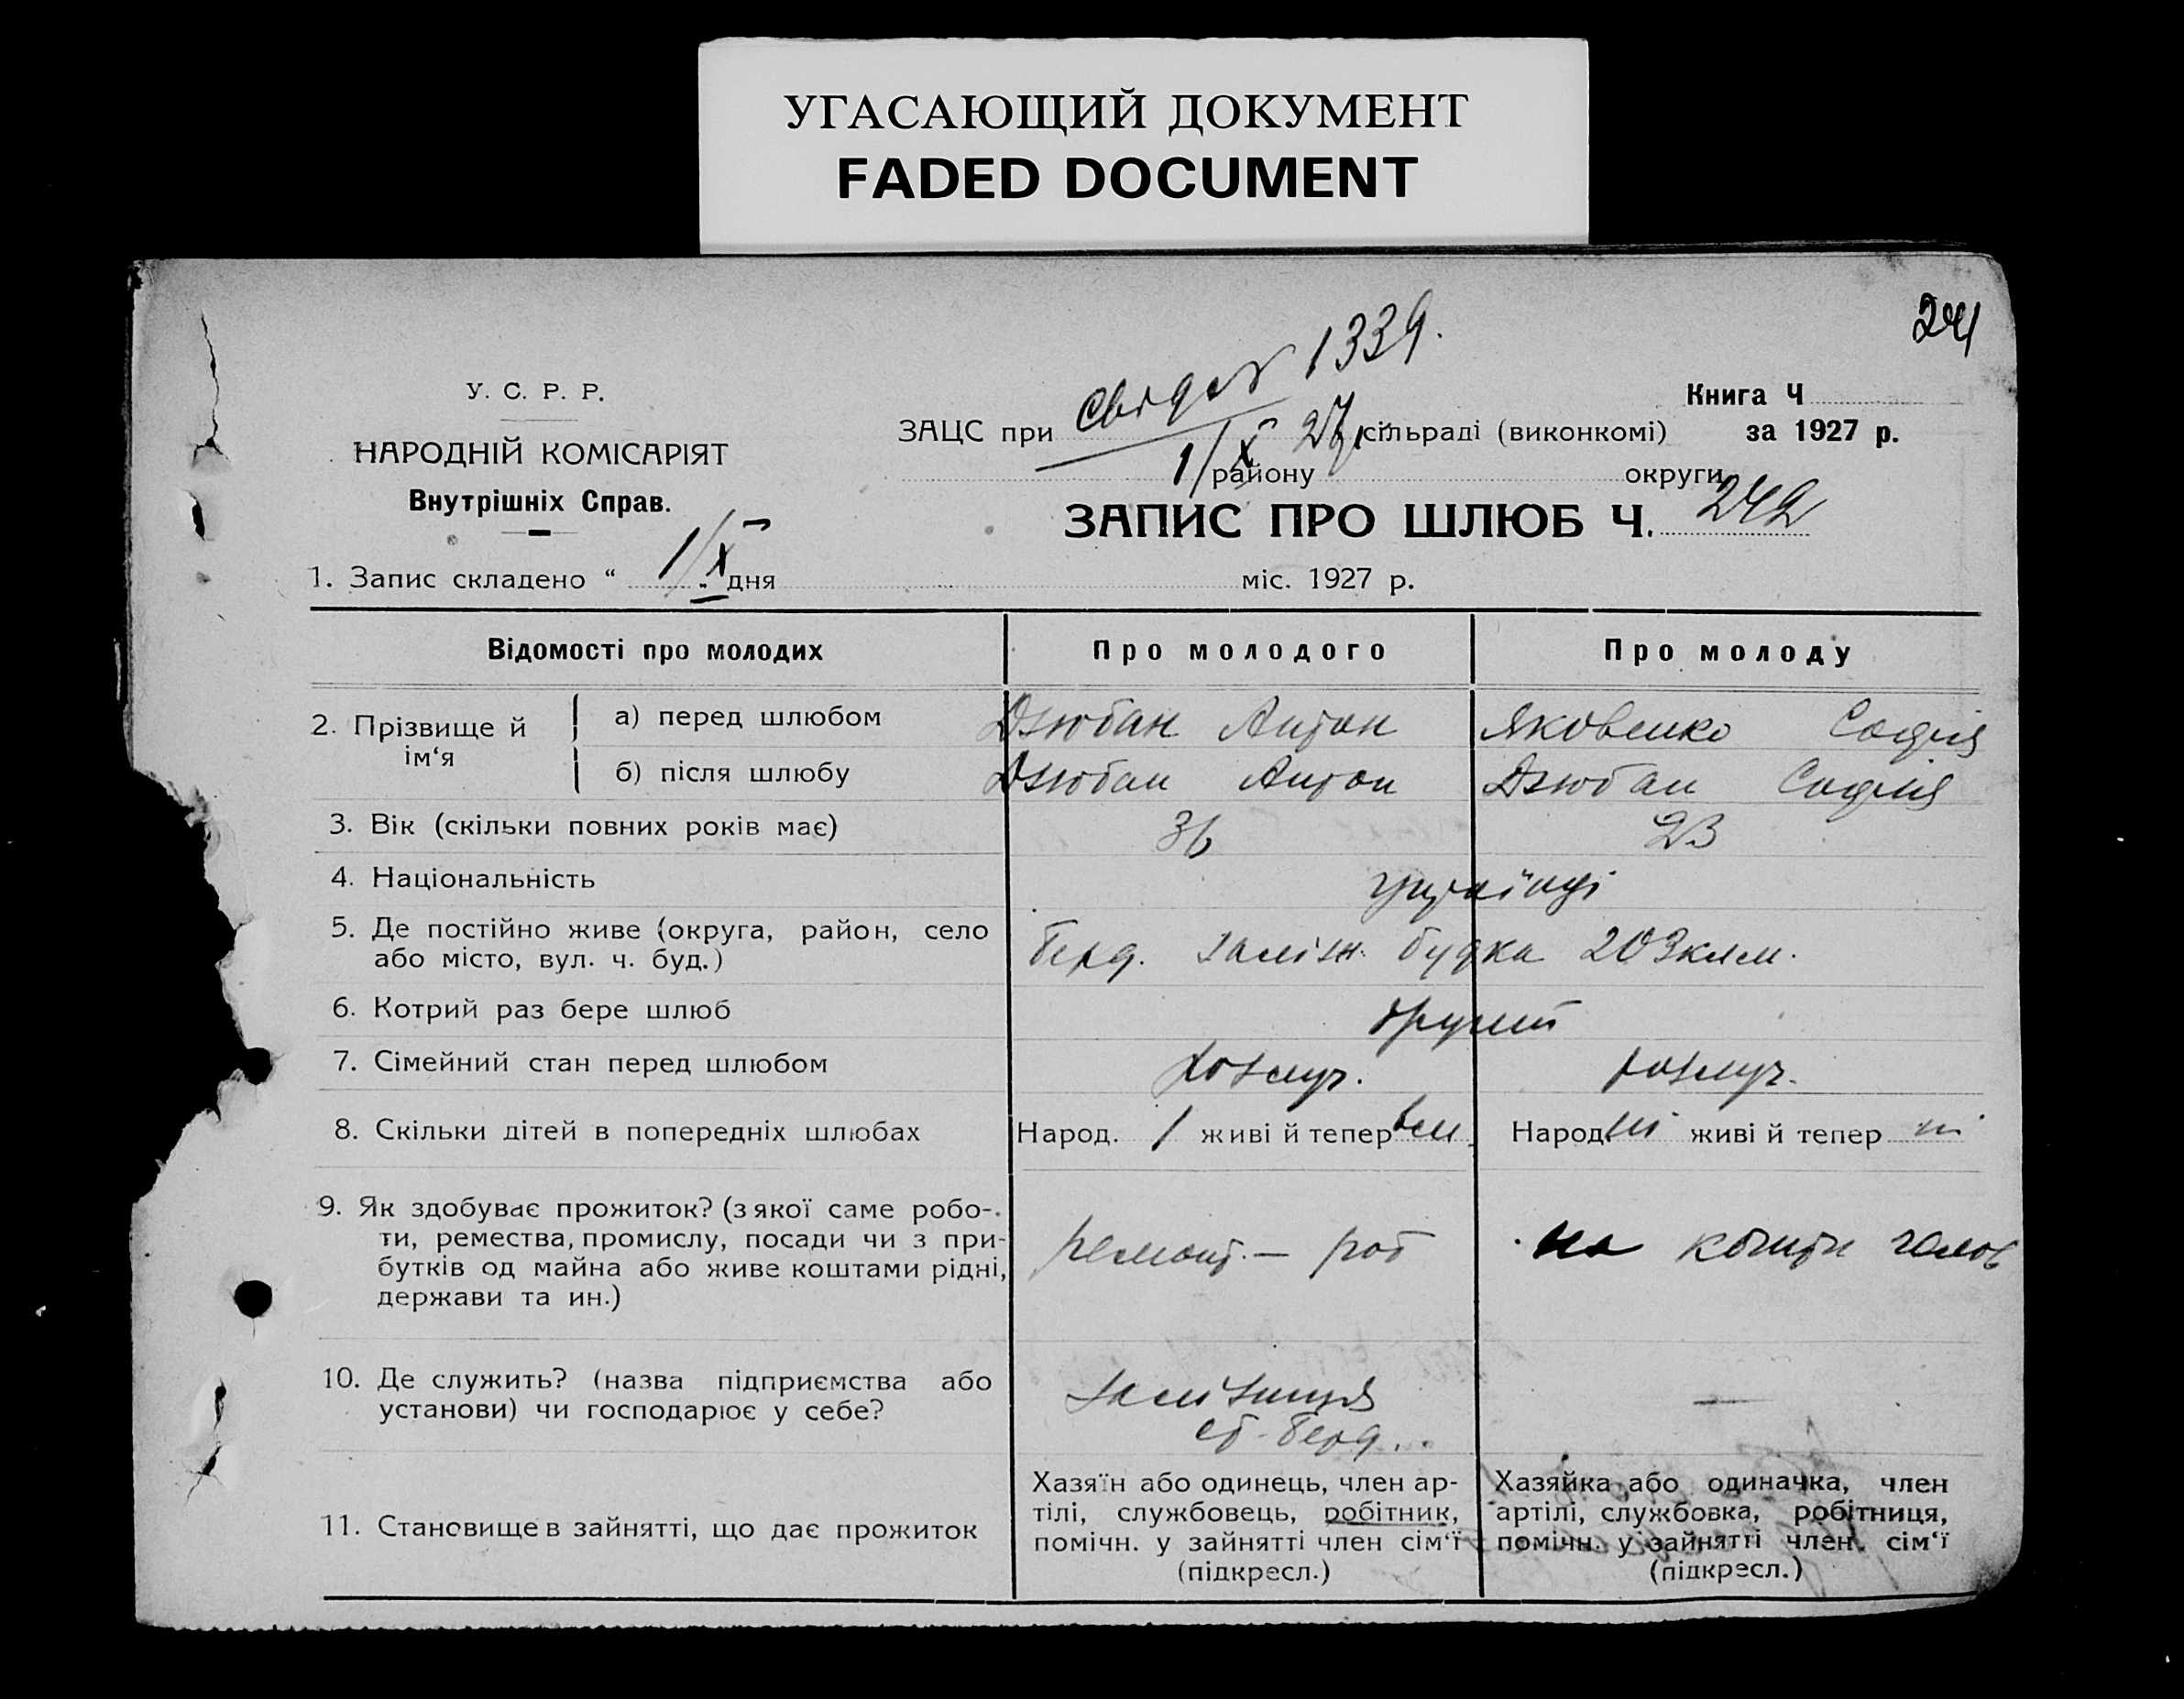 УГАСАЮЩИЙ ДОКУМЕНТ
FADED DOCUMENT
241
У. С. Р. Р.
НАРОДНІЙ КОМІСАРІЯТ
Внутрішніх Справ.
1339.
Книга Ч
ЗАЦС при 1/X 27 сільраді (виконкомі) за 1927 р.
району округи
ЗАПИС ПРО ШЛЮБ Ч. 242
1. Запис складено “ 1/X „ дня міс. 1927 р.
Відомості про молодих Про молодого Про молоду
2. Прізвище й ім‘я
а) перед шлюбом Дзюбан Антон Яковенко Софія
б) після шлюбу Дзюбан Антон Дзюбан Софія
3. Вік (скільки повних років має) 36 23
4. Національність українці
5. Де постійно живе (округа, район, село
або місто, вул. ч. буд.) Берд. заліж. будка 203 клм.
6. Котрий раз бере шлюб другий
7. Сімейний стан перед шлюбом розлуч. розлуч.
8. Скільки дітей в попередніх шлюбах Народ. 1 живі й тепер Народ. ні живі й тепер ні
9. Як здобуває прожиток? (з якої саме робо-
ти, ремества, промислу, посади чи з при-
бутків од майна або живе коштами рідні,
держави та ин.)
ремонт. — роб на кошти чолов
10. Де служить? (назва підприємства або
установи) чи господарює у себе?
залізниця —
ст. Берд.
11. Становище в зайнятті, що дає прожиток
Хазяїн або одинець, член ар-
тілі, службовець, робітник,
помічн. у зайнятті член сім‘ї
(підкресл.)
Хазяйка або одиначка, член
артілі, службовка, робітниця,
помічн. у зайнятті член. сім‘ї
(підкресл.)